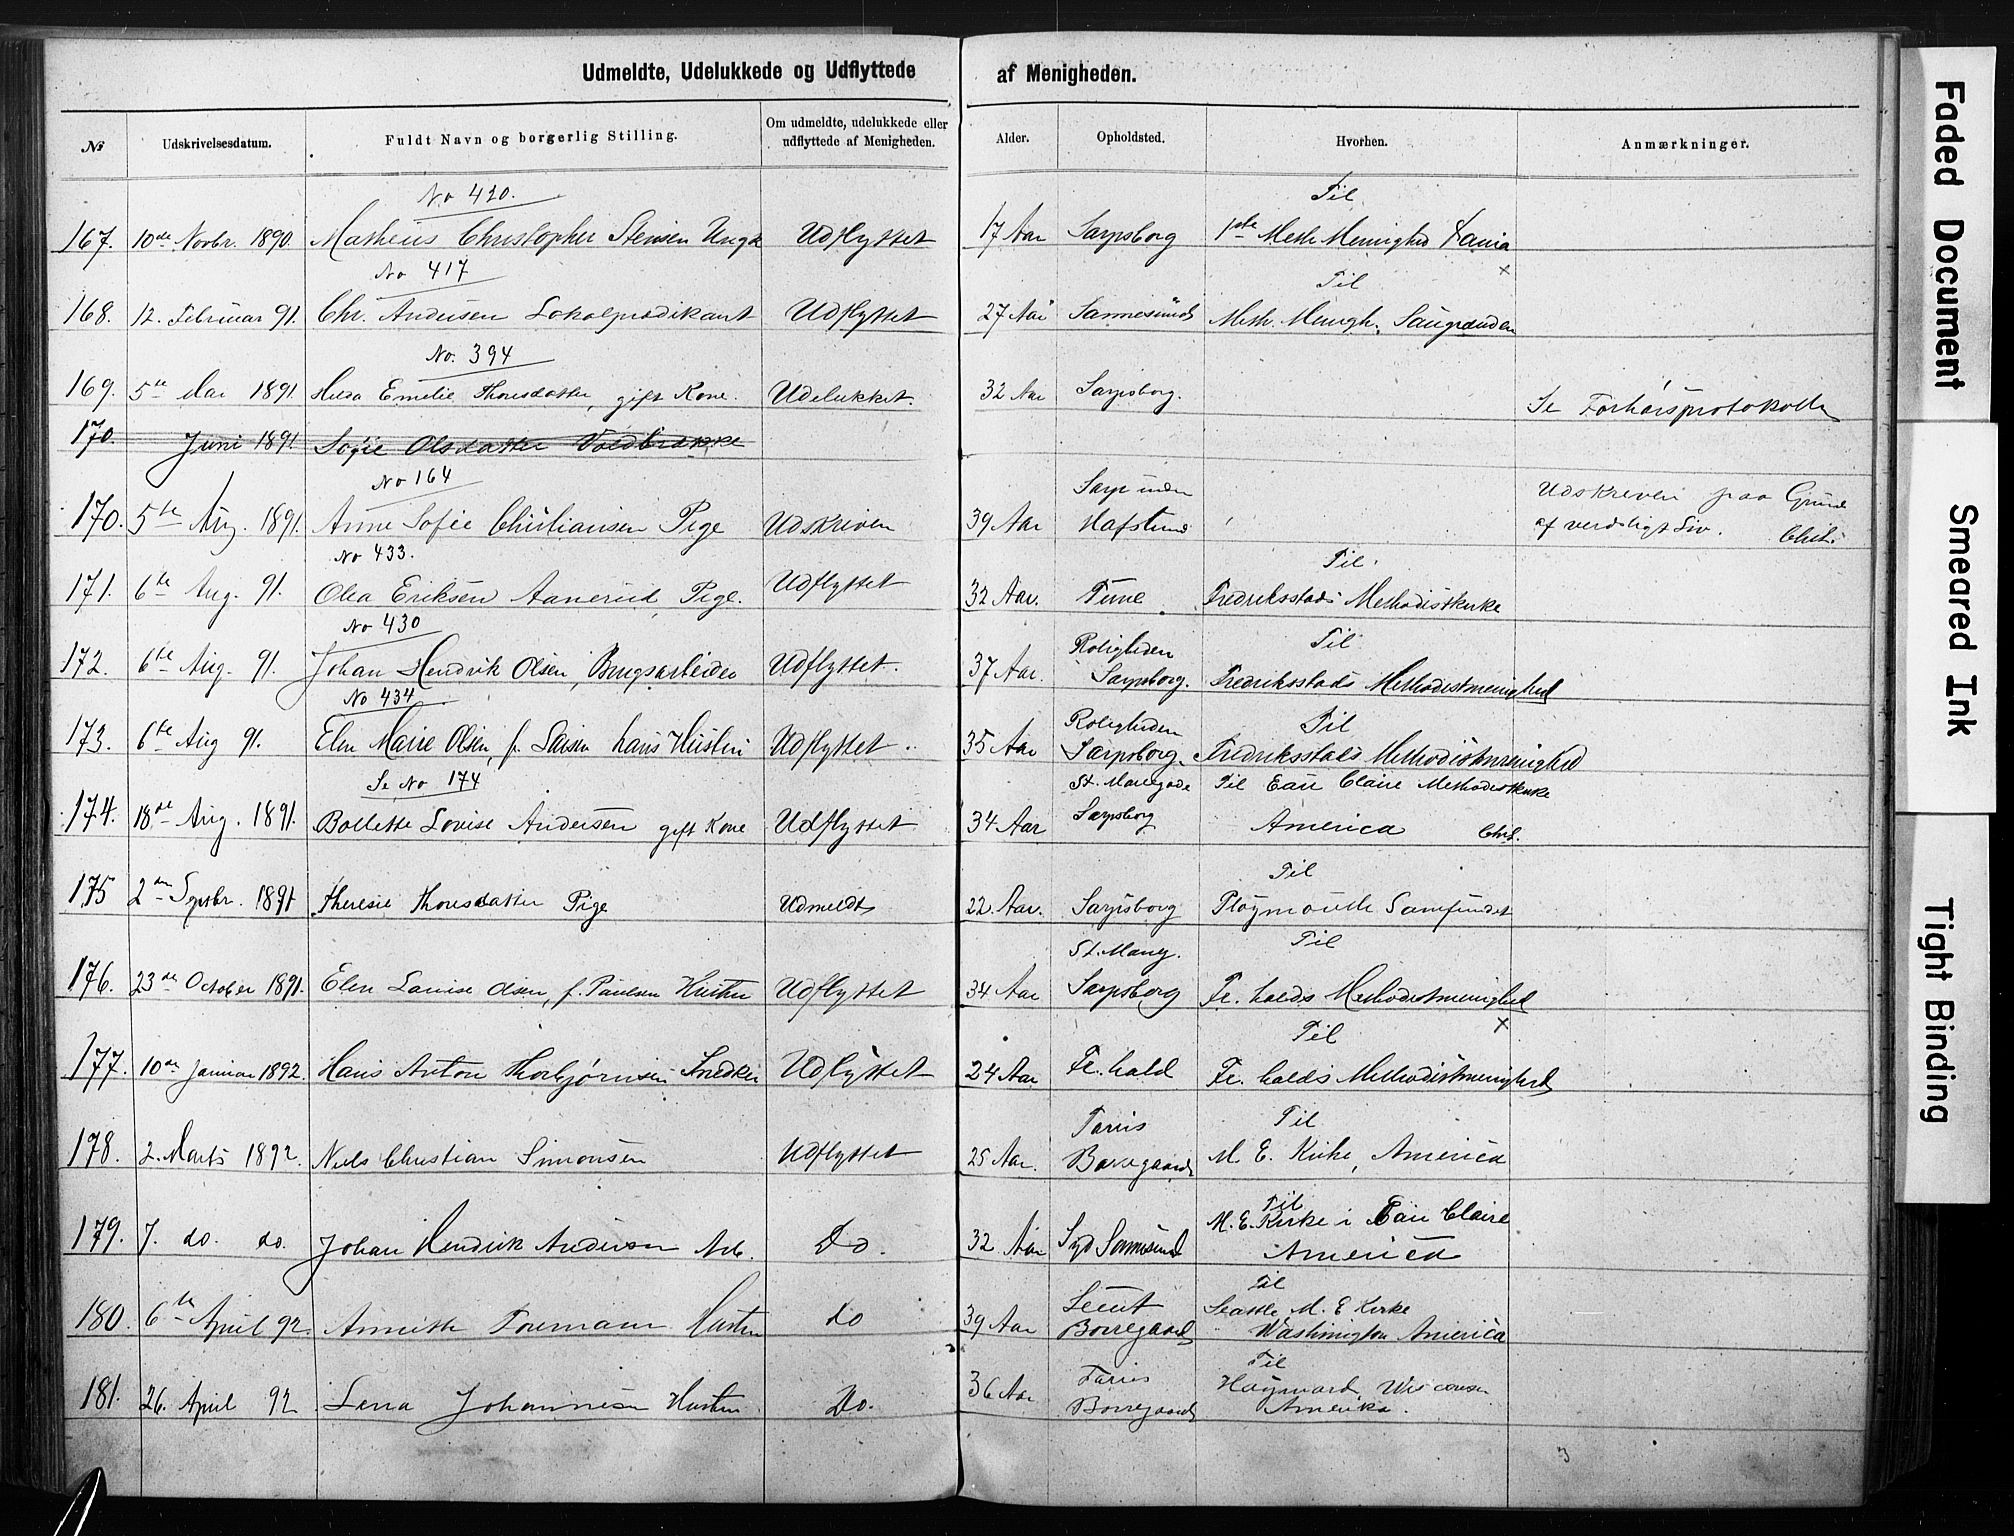 Udmeldte, Udelukkede og Udflyttede af Menigheden.
№ Udskrivelsesdatum. Fuldt Navn og borgerlig Stilling. Om udmeldte, udelukkede eller udflyttede af Menigheden. Alder. Opholdsted. Hvorhen. Anmærkninger.
No 420. Til
167. 10de Novbr. 1890. Matheus Christopher Stensen Udflyttet 17 Aar Sarpsborg 1ste Meth Menighed
No 417 Til
168. 12. Februar 91. Chr. Andersen Lokalprædikant Udflyttet 27 Aar Sannesund Meth. Menigh.
No. 394
169. 5te Mai 1891. Hilda Emelie Thoresdatter, gift Kone. Udelukket. 32 Aar Sarpsborg. Se Forhørsprotokolle
170. Juni 1891. Sofie Olsdatter
No 164 Sarp under Udskreven paa Grund
170. 5te Aug. 1891. Anne Sofie Christiansen Pige Udskriven 39 Aar Hafslund af verdsligt Liv. Chrst.
No 433. Til.
171. 6te Aug. 91. Olea Eriksen Aanerud, Pige. Udflyttet 32 Aar. Tune Fredriksstads Methodistkirke
No 430 Roligheden Til
172. 6te Aug. 91. Johan Hendrik Olsen, Brugsarbeider Udflyttet. 37 Aar. Sarpsborg. Fredriksstads Methodistmenighed
No 434 Roligheden Til
173. 6te Aug 91. Elen Marie Olsen, f. Larsen hans Hustru Udflyttet. 35 Aar Sarpsborg. Fredriksstads Methodistmenighed
Se No 174 St. Mariegade Til Eau Claire Methodistkirke
174. 18de Aug. 1891. Bollette Lovise Andersen gift Kone Udflyttet 34 Aar Sarpsborg America Chrst.
Til
175 2den Septbr. 1891 Theresie Thoresdatter Pige Udmeldt 22. Aar. Sarpsborg Ploymouth Samfundet
St. Marieg. Til
176. 23de October 1891. Elen Lovise Olsen, f. Paulsen Hustru Udflyttet 34 Aar Sarpsborg Fr. halds Methodistmenighed
Til
177. 10de Januar 1892. Hans Anton Thorbjørnsen Snedker Udflyttet 24 Aar Fr. hald Fr. halds Methodistmenighed
Tarris Til
178. 2. Marts 1892. Niels Christian Simonsen Udflyttet 25 Aar. Borregaard M. E. Kirke, America
Til
179. 7. do. do. Johan Hendrik Andersen Arb. Do. 32 Aar Syd Sannesund M. E. Kirke i Eau Claire America
Til
180. 6te April 92. Annette Foremann Hustru do 39 Aar Borregaard Seattle M. E Kirke Washington America
Tarris Til
181. 26. April 92 Lena Johannesen Hustru Do. 36 Aar Borregaard Hayward, Wisconsin Amerika.
3
Faded Document
Smeared Ink
Tight Binding